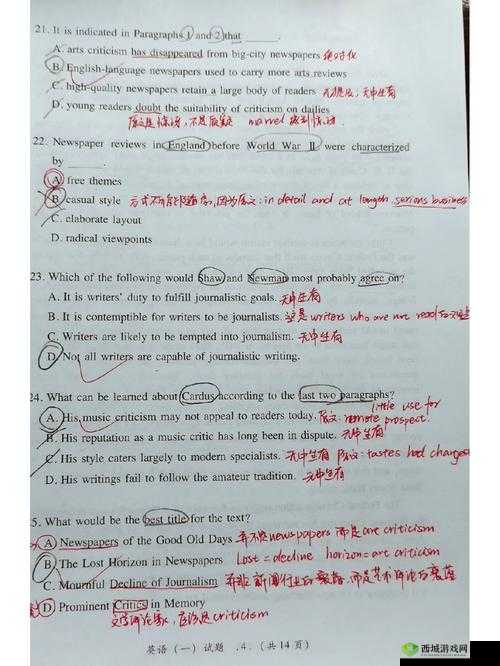 21. It is indicated in Paragraphs 1 and 2 that ____.
A. arts criticism has disappeared from big-city newspapers 绝对化
B. English-language newspapers used to carry more arts reviews
C. high-quality newspapers retain a large body of readers 无中生有
D. young readers doubt the suitability of criticism on dailies
原文是惊讶, 不是质疑 marvel
22. Newspaper reviews in England before World War II were characterized
by ____.
A free themes
B. casual style 因为原文: in detail and at length serious business
C. elaborate layout
D. radical viewpoints
23. Which of the following would Shaw and Newman most probably agree on?
A. It is writers' duty to fulfill journalistic goals. 无中生有
B. It is contemptible for writers to be journalists. 这是 writers who are not
C. Writers are likely to be tempted into journalism. 无中生有
D. Not all writers are capable of journalistic writing.
24. What can be learned about Cardus according to the last two paragraphs?
little use for
A. His music criticism may not appeal to readers today. 原文: remote prospect.
B. His reputation as a music critic has long been in dispute. 无中生有
C. His style caters largely to modern specialists. 无中生有 原文: tastes had changed
D. His writings fail to follow the amateur tradition. 无中生有
5. What would be the best title for the text?
A Newspapers of the Good Old Days 并不是newspapers 而是art criticism
B. The Lost Horizon in Newspapers Lost=decline horizon=art criticism
C. Mournful Decline of Journalism 并非新闻行业的衰落, 而是艺术评论的衰落
D Prominent Critics in Memory
文学评论家, 应该是criticism
英语 (一) 试题 .4. (共14页)
西城游戏网